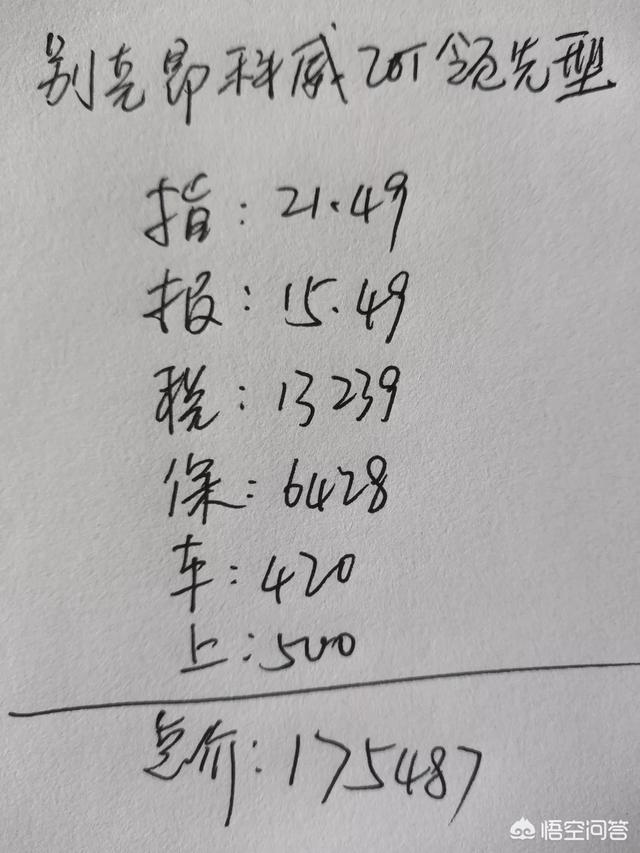 别克昂科威20T领先型
指:21.49
报:15.49
税:13239
保:6428
车:420
上:500
总价:175487
悟空问答